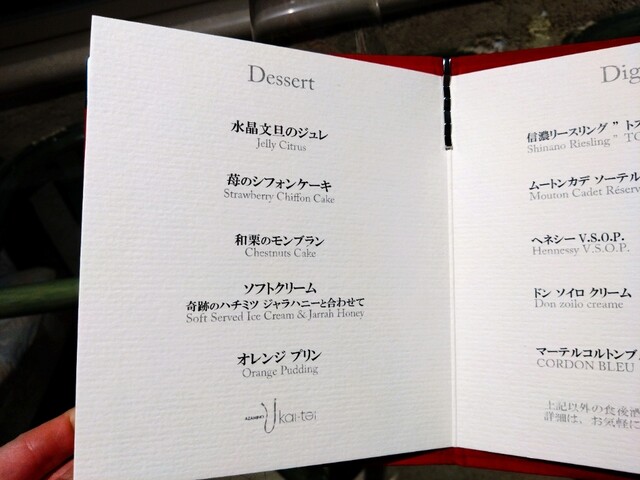 Dessert
水晶文旦のジュレ
Jelly Citrus
苺のシフォンケーキ
Strawberry Chiffon Cake
和栗のモンブラン
Chestnuts Cake
ソフトクリーム
奇跡のハチミツ ジャラハニーと合わせて
Soft Served Ice Cream & Jarrah Honey
オレンジ プリン
Orange Pudding
kai-toi
Dig
信濃リースリング " トス
Shinano Riesling " TO
ムートンカデ ソーテル
Mouton Cadet Réserv
ヘネシー V.S.O.P.
Hennessy V.S.O.P.
ドン ソイロ クリーム
Don zoilo creame
マーテルコルトンブ
CORDON BLEU
上記以外の食後酒
詳細は、お気軽に